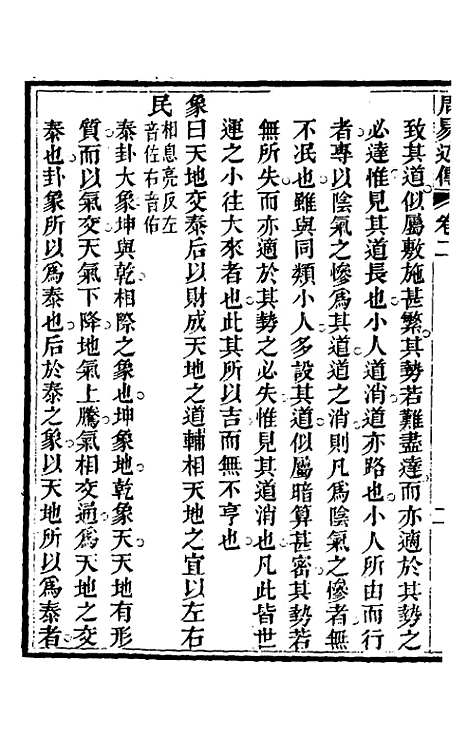 周易述傳 卷二 二
致其道似屬敷施甚繁其勢若難盡達而亦適於其勢之
必達惟見其道長也小人道消道亦路也小人所由而行
者專以陰氣之慘爲其道道之消則凡爲陰氣之慘者無
不泯也雖與同類小人多設其道似屬暗算甚密其勢若
無所失而亦適於其勢之必失惟見其道消也凡此皆世
運之小往大來者也此其所以吉而無不亨也
象曰天地交泰后以財成天地之道輔相天地之宜以左右
民相息亮反左音佐右音佑
泰卦大象坤與乾相際之象也坤象地乾象天天地有形
質而以氣交天氣下降地氣上騰氣相交通爲天地之交
泰也卦象所以爲泰也后於泰之象以天地所以爲泰者